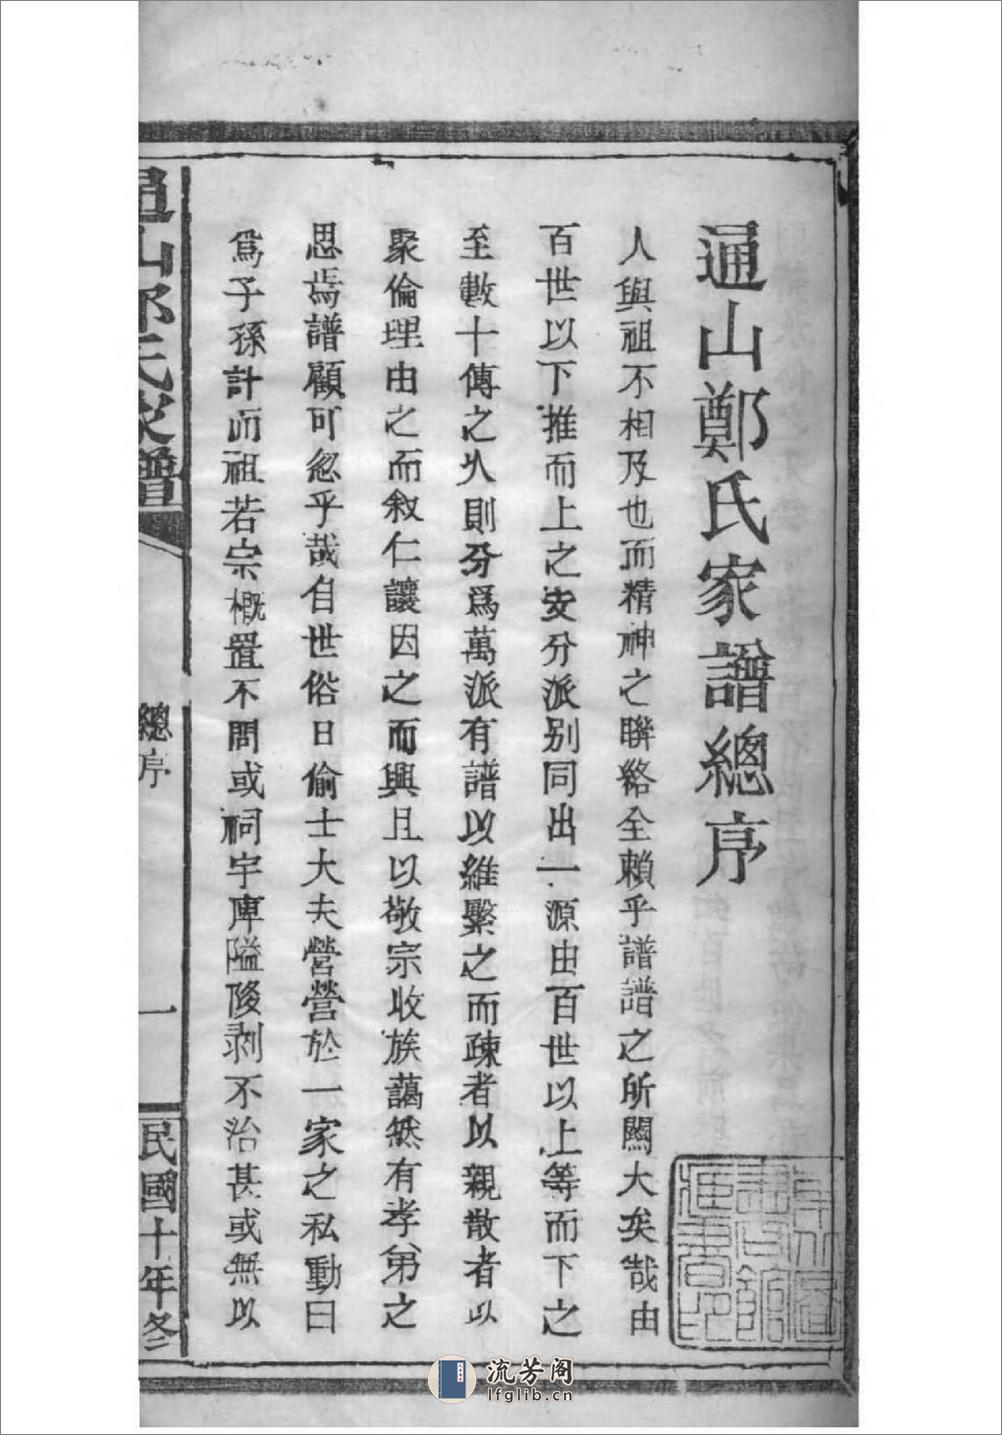 通山鄭氏家譜總序
人與祖不相及也而精神之聯絡全賴乎譜譜之所關大矣哉由
百世以下推而上之支分派別同出一源由百世以上等而下之
至數十傳之久則分爲萬派有譜以維繫之而疎者以親散者以
聚倫理由之而敘仁讓因之而興且以敬宗收族藹然有孝弟之
思焉譜顧可忽乎哉自世俗日偷士大夫營營於一家之私動曰
爲子孫計而祖若宗概置不問或祠宇庳隘陊剥不治甚或無以
通山鄭氏家譜
總序
一
民國十年修
流芳阁
lfglib.cn